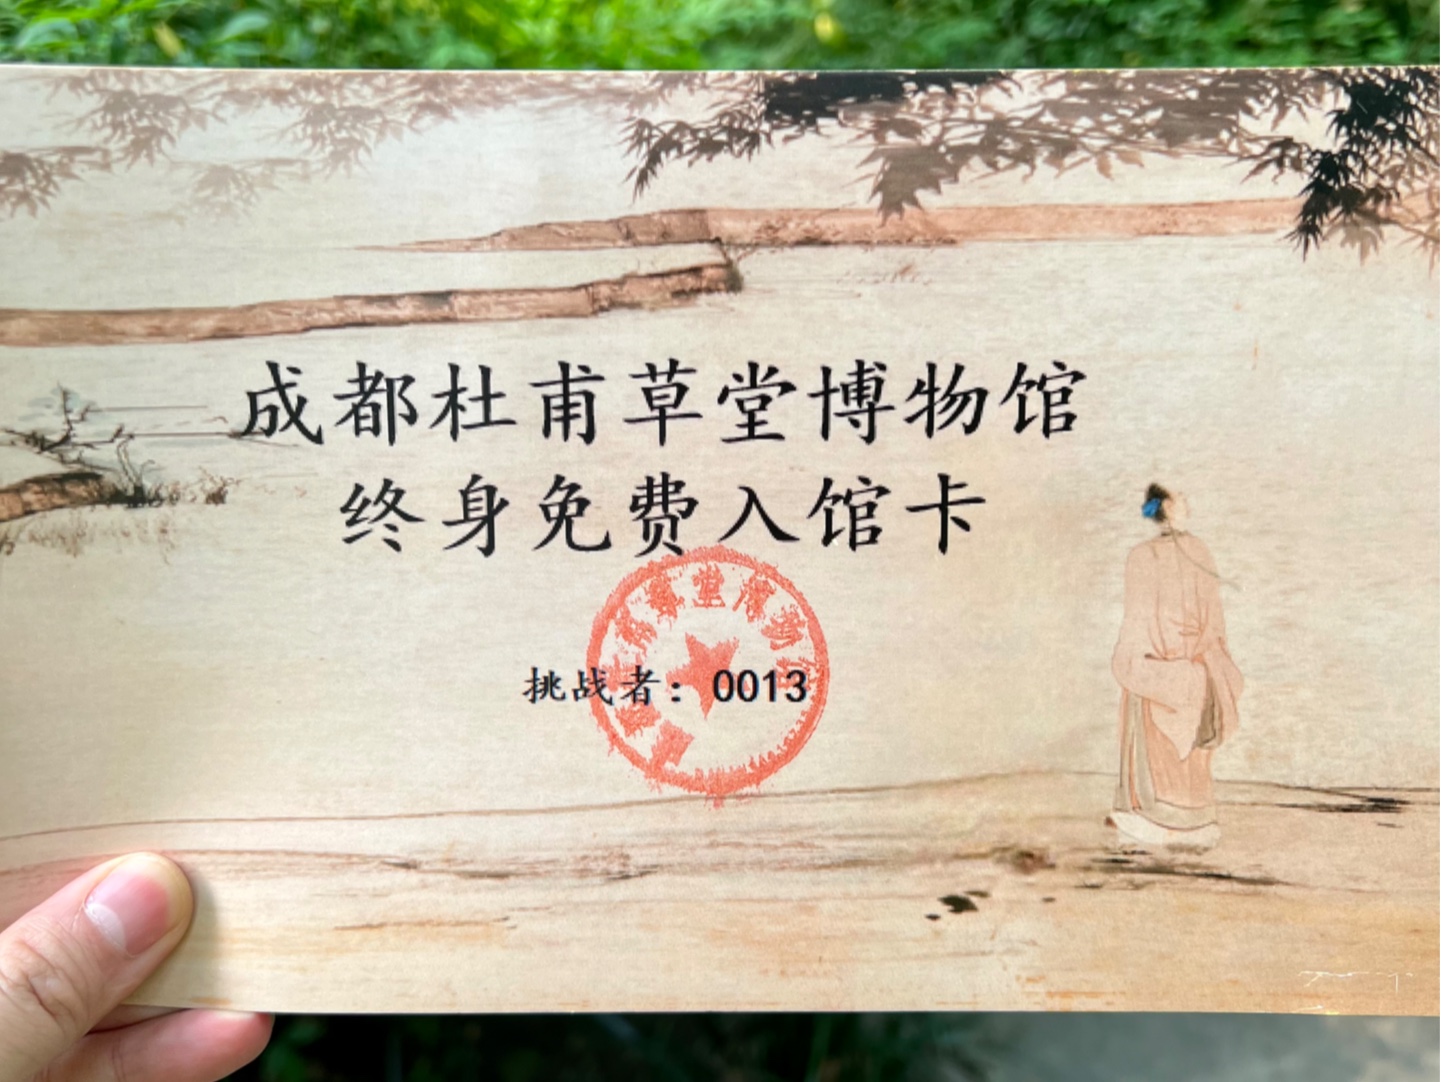 成都杜甫草堂博物馆
终身免费入馆卡
挑战者：0013